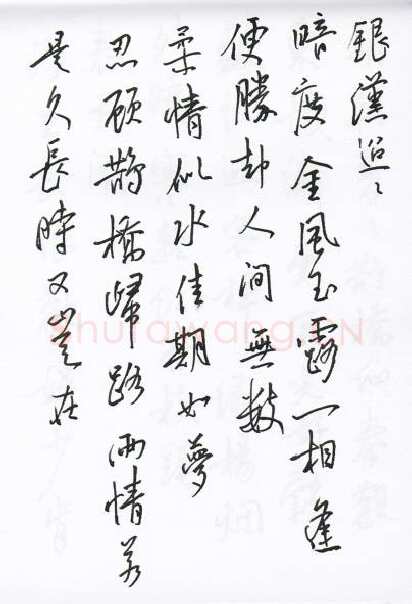 銀漢迢〻
暗度金風玉露一相逢
便勝却人间無数
柔情似水佳期如夢
忍顾鹊橋歸路两情若
是久長時又豈在
Shufawang.CN